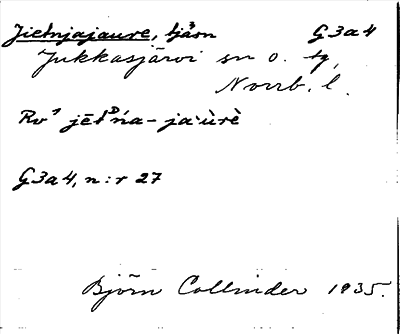 Jietnjajaure, tjärn G3a4
Jukkasjärvi sn o. tg,
Norrb. l.
Rv¹ jētᴰńa-jaùrè
G3a4, n:r 27
Björn Collinder 1935.